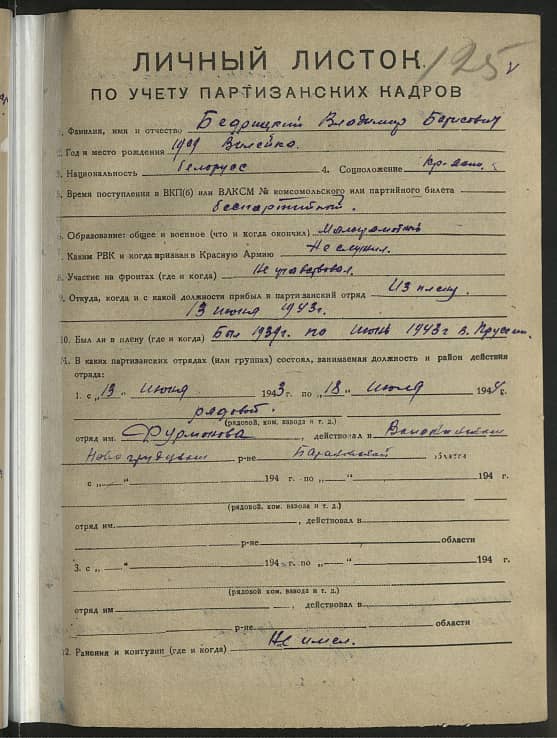 125 v
ЛИЧНЫЙ ЛИСТОК
ПО УЧЕТУ ПАРТИЗАНСКИХ КАДРОВ
1. Фамилия, имя и отчество Бедрицкий Владимир Борисович
2. Год и место рождения 1909 Вилейка.
3. Национальность белорус 4. Соцположение кр-нин.
5. Время поступления в ВКП(б) или ВЛКСМ № комсомольского или партийного билета
беспартийный.
6. Образование: общее и военное (что и когда окончил) Малограмотный
7. Каким РВК и когда призван в Красную Армию Не служил.
8. Участие на фронтах (где и когда) Не участвовал.
9. Откуда, когда и с какой должности прибыл в партизанский отряд Из плену.
13 июня 1943г.
10. Был ли в плену (где и когда) Был 1939г. по июнь 1943г в. Пруссии.
11. В каких партизанских отрядах (или группах) состоял, занимаемая должность и район действия
отряда:
1. с „13" июня 1943 г. по „18" июля 1944 г.
рядовой.
(рядовой, ком. взвода и т. д.)
отряд им. Фурмонова, действовал в
Новогрудским р-не Барановской области
с „ " 194 г. по „ " 194 г.
(рядовой, ком. взвода и т. д.)
отряд им. , действовал в
р-не области
3. с „ " 194 г. по „ " 194 г.
(рядовой, ком. взвода и т. д.)
отряд им , действовал в
р-не области
12. Ранения и контузии (где и когда) Не имел.